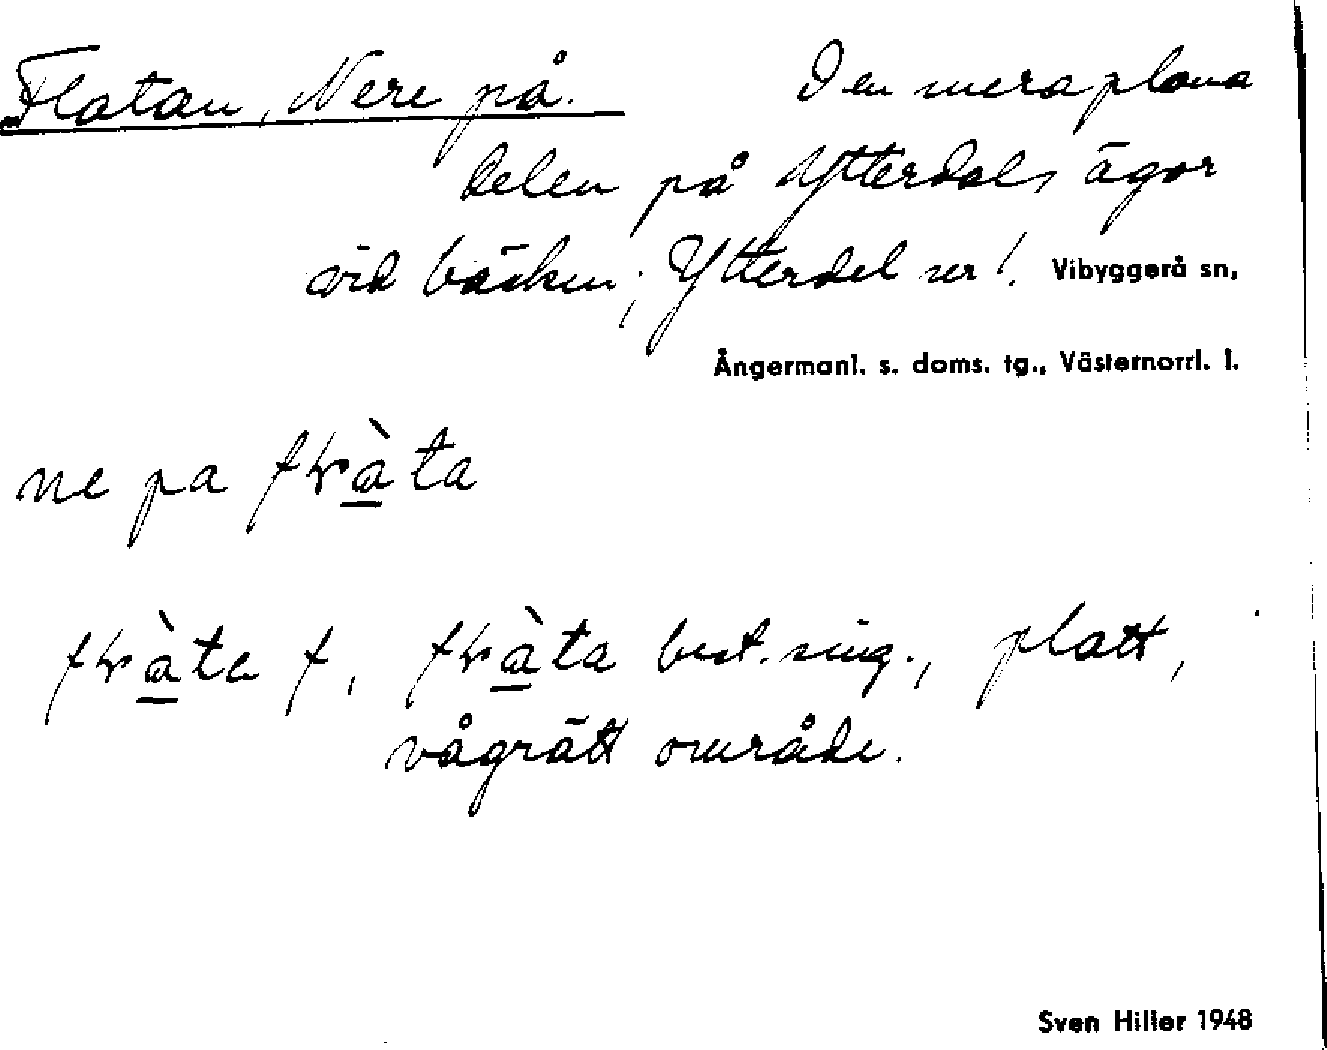 Flatan, Nere på. Den mera plana
delen på Ytterdals ägor
vid bäcken; Ytterdel ser!. Vibyggerå sn,
Ångermanl. s. doms. tg., Västernorrl. l.
ne pa
f, best. sing., platt,
vågrätt område.
Sven Hiller 1948